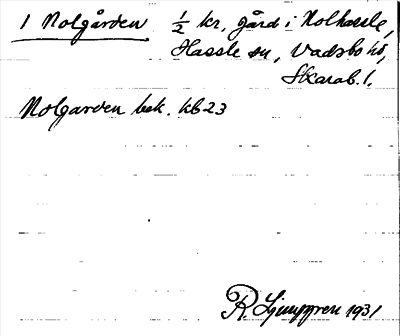 1 Nolgården ½ kr, gård i Nolhassle,
Hassle sn, Vadsbo hd,
Skarab. l.
Nolgarden bek. kb 23
R Ljunggren 1931